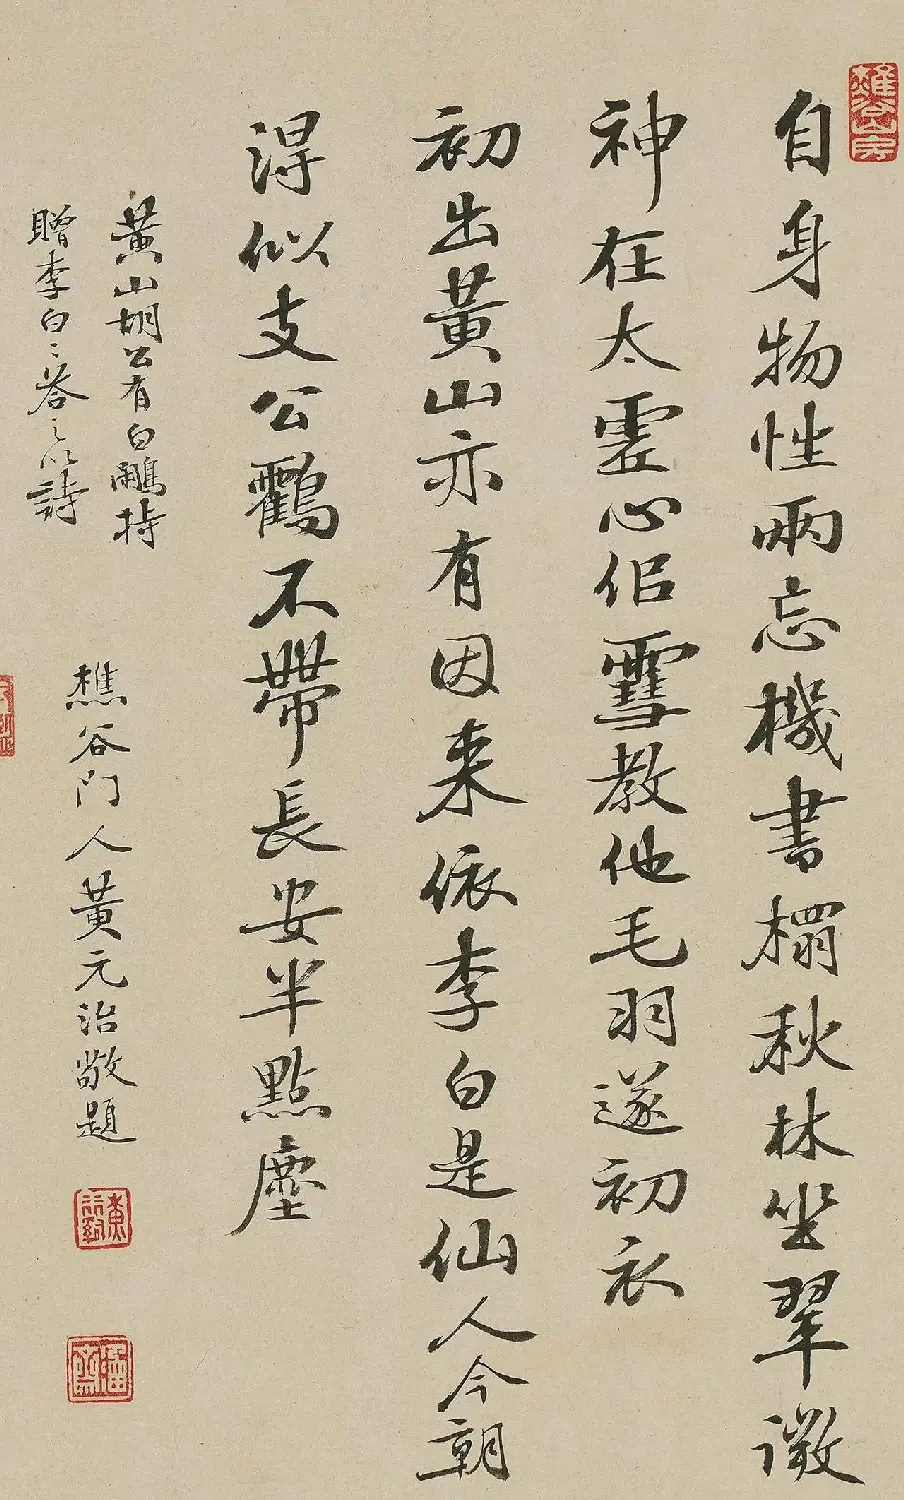 自身物性兩忘機書榻秋林坐翠微
神在太霊心侣雪教他毛羽遂初衣
初出黄山亦有因来依李白是仙人今朝
淂似支公鸖不帶長安半點塵
黄山胡公有白鷴持
贈李白〻荅之以詩
樵谷門人黄元治敬題